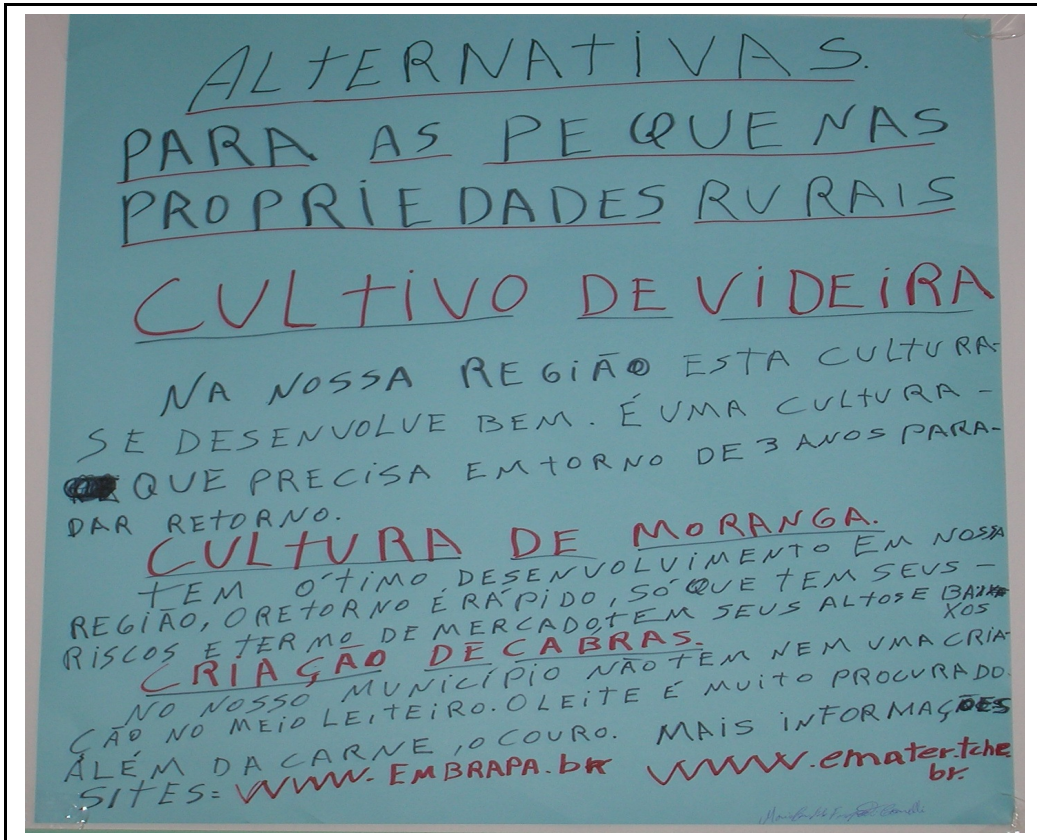 ALTERNATIVAS.
PARA AS PEQUENAS
PROPRIEDADES RURAIS
CULTIVO DE VIDEIRA
NA NOSSA REGIÃO ESTA CULTURA-
SE DESENVOLVE BEM. É UMA CULTURA -
QUE PRECISA EM TORNO DE 3 ANOS PARA-
DAR RETORNO.
CULTURA DE MORANGA.
TEM ÓTIMO DESENVOLVIMENTO EM NOSSA
REGIÃO, O RETORNO É RÁPIDO, SÓ QUE TEM SEUS -
RISCOS E TERMO DE MERCADO, TEM SEUS ALTOS E BAI
XOS
CRIAÇÃO DE CABRAS.
NO NOSSO MUNICÍPIO NÃO TEM NEM UMA CRIA-
ÇÃO NO MEIO LEITEIRO. O LEITE É MUITO PROCURADO.
ALÉM DA CARNE, O COURO. MAIS INFORMAÇÕES
SITES: WWW.EMBRAPA.br WWW.emater.tche.
br.